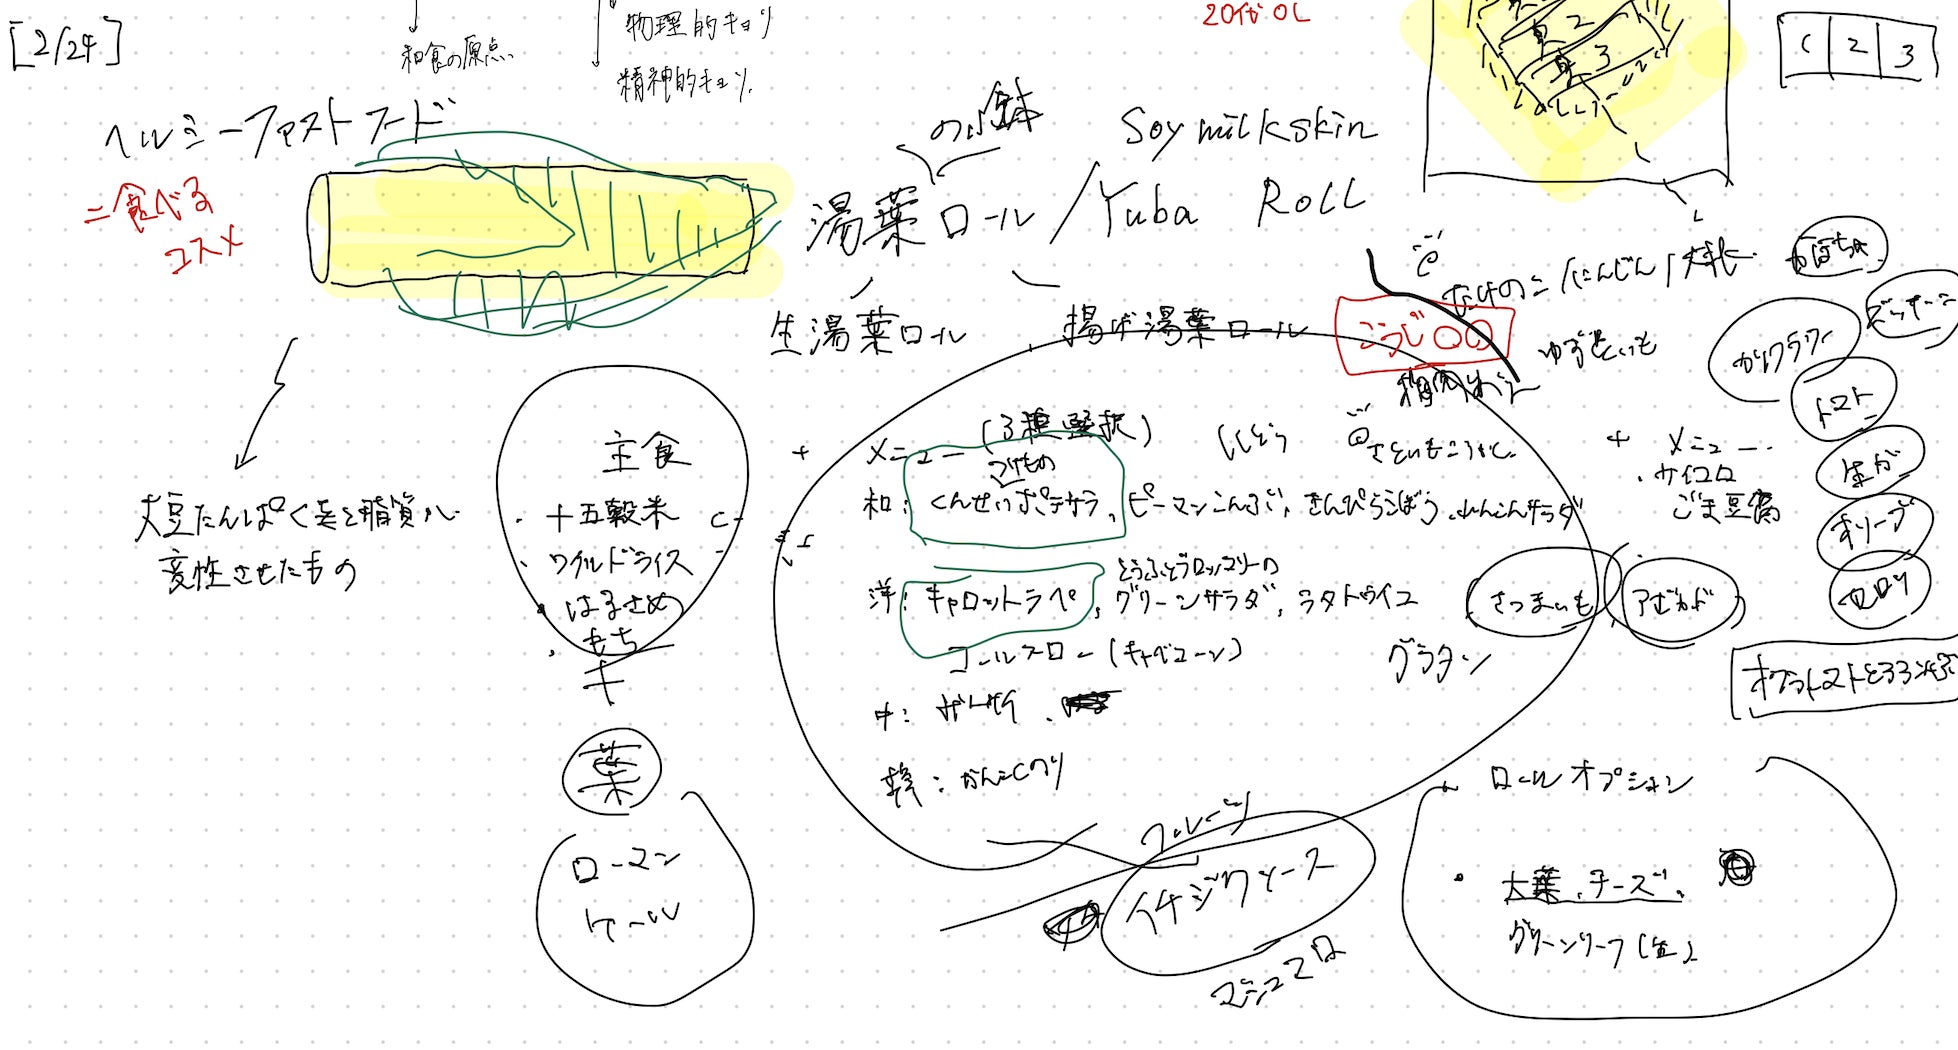 [2/24]
和食の原点
物理的キョリ
精神的キョリ
20代OL
1 2 3
2
3
ヘルシーファストフード
=食べる
コスメ
Soymilkskin
湯葉ロール/Yuba ROLL
生湯葉ロール
揚げ湯葉ロール
こうじ〇〇
たけのこ/にんじん/
かぼちゃ
ズッキーニ
カリフラワー
トマト
生が
オリーブ
セロリ
大豆たんぱく質と脂質が
変性させたもの
主食
・十五穀米
・ワイルドライス
・はるさめ
・もち
+
葉
ローマン
ケール
+
メニュー(3種選択)
つけもの
和:くんせいポテサラ、ピーマンこんぶ、きんぴらごぼう、れんこんサラダ
ししとう
洋:キャロットラペ、グリーンサラダ、ラタトゥイユ
コールスロー(キャベコーン)
グラタン
さつまいも
アボカド
中:ザーサイ、
韓:かんこくのり
+
メニュー
・サイコロ
ごま豆腐
フルーツ
イチジクソース
マシュマロ
ロールオプション
・大葉、チーズ、
グリーンリーフ(生)